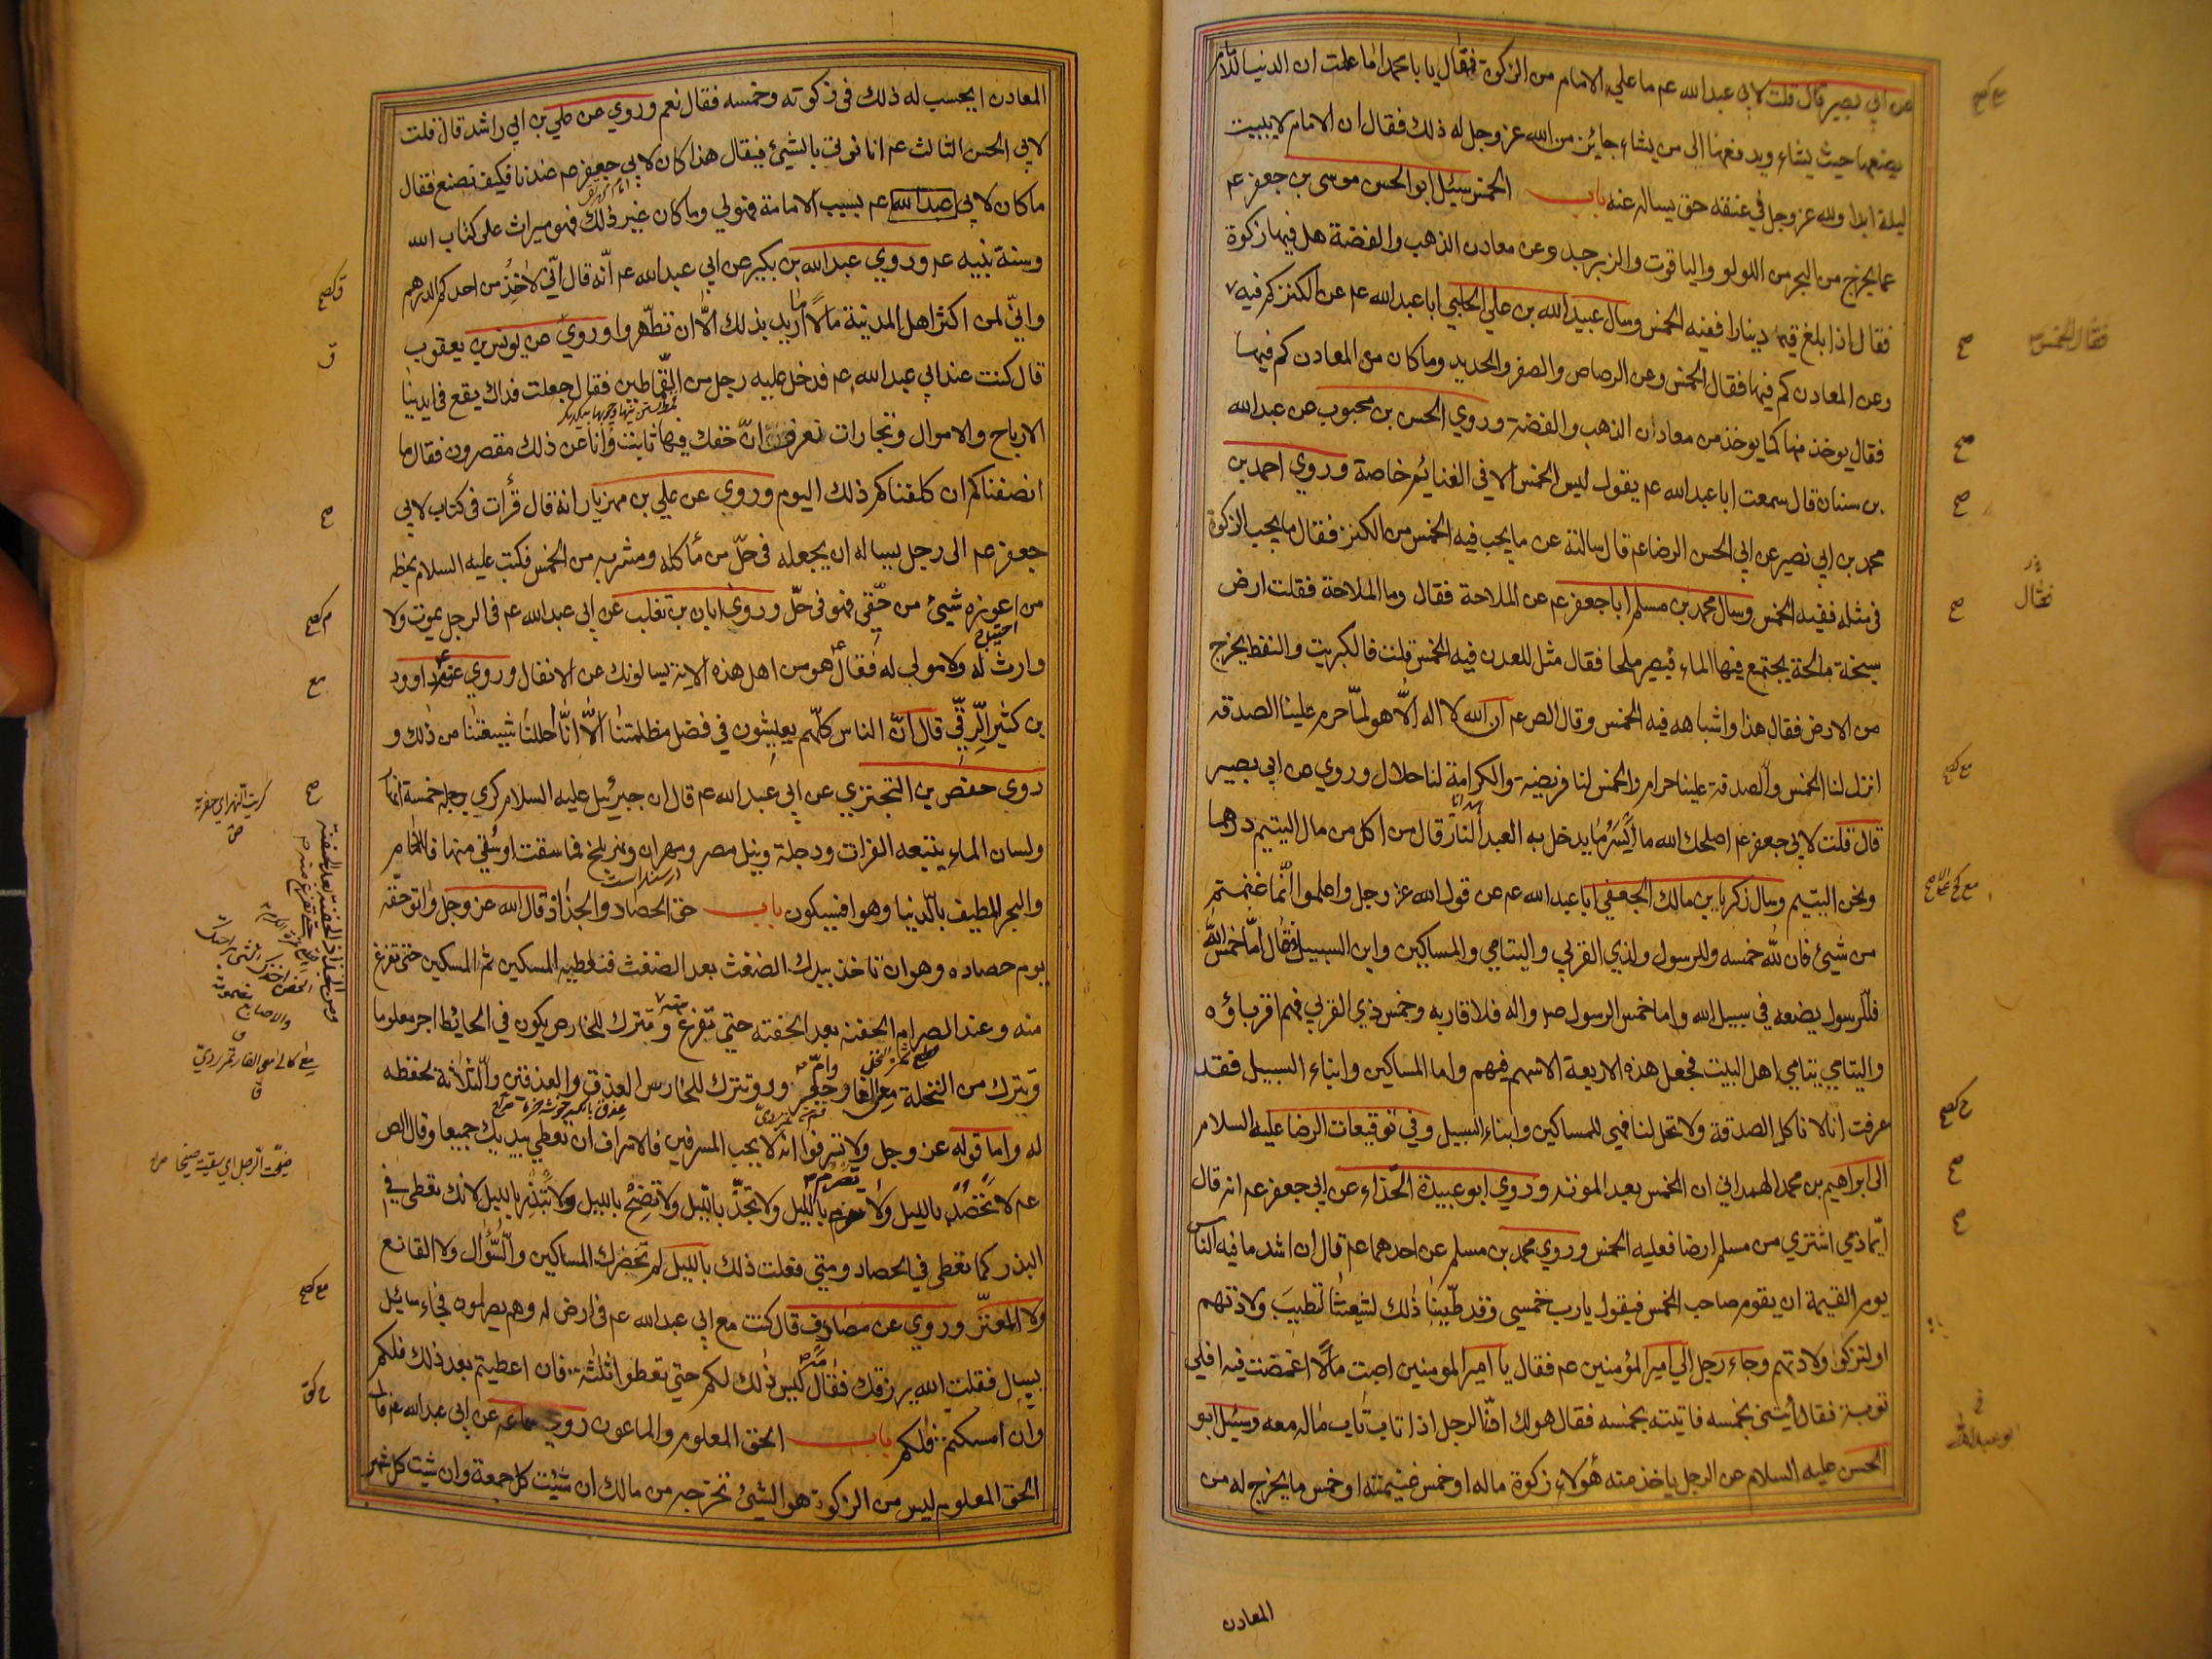 عن ابي بصير قال قلت لابي عبد الله عم ما علي الامام من الزكوة فقال يا با محمد اما علمت ان الدنيا للامام
يضعها حيث يشاء ويدفعها الى من يشاء جائز من الله عز وجل له ذلك فقال ان الامام لا يبيت
ليلة ابدا ولله عز وجل في عنقه حق يساله عنه باب الخمس سئل ابو الحسن موسى بن جعفر عم
عما يخرج من البحر من اللولو والياقوت والزبرجد وعن معادن الذهب والفضة هل فيها زكوة
فقال اذا بلغ قيمته دينارا ففيه الخمس وسال عبيد الله بن علي الحلبي ابا عبد الله عم عن الكنز كم فيه
وعن المعادن كم فيها فقال الخمس وعن الرصاص والصفر والحديد وما كان من المعادن كم فيها
فقال يوخذ منها كما يوخذ من معادن الذهب والفضة وروي الحسن بن محبوب عن عبد الله
بن سنان قال سمعت ابا عبد الله عم يقول ليس الخمس الا في الغنائم خاصة وروي احمد بن
محمد بن ابي نصير عن ابي الحسن الرضا عم قال سالته عن ما يجب فيه الخمس من الكنز فقال ما يجب الزكوة
في مثله ففيه الخمس وسال محمد بن مسلم ابا جعفر عم عن الملاحة فقال وما الملاحة فقلت ارض
سبخة مالحة يجتمع فيها الماء فيصير ملحا فقال مثل المعدن فيه الخمس قلت فالكبريت والنفط يخرج
من الارض فقال هذا واشباهه فيه الخمس وقال الص عم ان الله لا اله الا هو لما حرم علينا الصدقة
انزل لنا الخمس والصدقة علينا حرام والخمس لنا فريضة والكرامة لنا حلال وروي عن ابي بصير
قال قلت لابي جعفر عم اصلحك الله ما ايسر ما يدخل به العبد النار قال من اكل من مال اليتيم درهما
ونحن اليتيم وسال زكريا بن مالك الجعفي ابا عبد الله عم عن قول الله عز وجل واعلموا انما غنمتم
من شيئ فان لله خمسه وللرسول ولذي القربى واليتامي والمساكين وابن السبيل فقال اما خمس الله
فللرسول يضعه في سبيل الله واما خمس الرسول ص واله فلاقاربه وخمس ذي القربى فهم اقرباؤه
واليتامي يتامي اهل البيت فجعل هذه الاربعة الاسهم فيهم واما المساكين وابناء السبيل فقد
عرفت انا لا ناكل الصدقة ولا تحل لنا فهي للمساكين وابناء السبيل وفي توقيعات الرضا عليه السلام
الى ابراهيم بن محمد الهمداني ان الخمس بعد المونة وروي ابو عبيدة الحذاء عن ابي جعفر عم انه قال
ايما ذمي اشترى من مسلم ارضا فعليه الخمس وروي محمد بن مسلم عن احدهما عم قال ان اشد ما فيه الناس
يوم القيمة ان يقوم صاحب الخمس فيقول يا رب خمسي وقد طيبنا ذلك لشيعتنا لتطيب ولادتهم
او لتزكوا ولادتهم وجاء رجل الي امير المؤمنين عم فقال يا امير المومنين اصبت مالا اغمضت فيه افلي
توبة فقال أيتني بخمسه فاتيته بخمسه فقال هو لك ان الرجل اذا تاب تاب ماله معه وسئل ابو
الحسن عليه السلام عن الرجل ياخذ منه هؤلاء زكوة ماله او خمس غنيمته او خمس ما يخرج له من
المعادن
المعادن ايحسب له ذلك في زكوته وخمسه فقال نعم وروي عن علي بن ابي راشد قال قلت
لابي الحسن الثالث عم انا نوتي بالشيئ فيقال هذا كان لابي جعفر عم عندنا فكيف نصنع فقال
ما كان لابي عبد الله عم بسبب الامامة فهو لي وما كان غير ذلك فهو ميراث على كتاب الله
وسنة نبيه عم وروي عبد الله بن بكير عن ابي عبد الله عم انه قال اني لاخذ من احدكم الدرهم
واني لمن اكثر اهل المدينة مالا ما اريد بذلك الا ان تطهروا وروي عن يونس بن يعقوب
قال كنت عند ابي عبد الله عم فدخل عليه رجل من القماطين فقال جعلت فداك يقع في ايدينا
الارباح والاموال وتجارات نعرف ان حقك فيها ثابت وانا عن ذلك مقصرون فقال ما
انصفناكم ان كلفناكم ذلك اليوم وروي عن علي بن مهزيار انه قال قرأت في كتاب لابي
جعفر عم الى رجل يساله ان يجعله في حل من مأكله ومشربه من الخمس فكتب عليه السلام بخطه
من اعوزه شيئ من حقي فهو في حل وروي ابان بن تغلب عن ابي عبد الله عم في الرجل يموت ولا
وارث له ولا مولي له فقال هو من اهل هذه الاية يسالونك عن الانفال وروي عنه داوود
بن كثير الرقي قال ان الناس كلهم يعيشون في فضل مظلمتنا الا انا احللنا شيعتنا من ذلك و
روى حفص بن البختري عن ابي عبد الله عم قال ان جبرئيل عليه السلام كري برجله خمسة انهار
ولسان الماء يتبعه الفرات ودجلة ونيل مصر ومهران ونهر بلخ فما سقت او سقي منها فللامام
والبحر المطيف بالدنيا وهو افسيكون باب حق الحصاد والجذاذ قال الله عز وجل واتو حقه
يوم حصاده وهو ان تاخذ بيدك الضغث بعد الضغث فتعطيه المسكين ثم المسكين حتى تفرغ
منه وعند الصرام الحفنة بعد الحفنة حتي تفرغ منه وتترك للخارص يكون في الحائط اجر معلوما
وتترك من النخلة معى الفار وام جعرور وتترك للحارس العذق والعذقين والثلاثة لحفظه
له واما قوله عز وجل ولا تسرفوا انه لا يحب المسرفين فالاسراف ان تعطي بيديك جميعا وقال الص
عم لا تحصد بالليل ولا تصرم بالليل ولا تجذ بالليل ولا تضح بالليل ولا تبذر بالليل لانك تعطي في
البذر كما تعطى في الحصاد ومتي فعلت ذلك بالليل لم تحضرك المساكين والسؤال ولا القانع
ولا المعتر وروي عن مصادف قال كنت مع ابي عبد الله عم في ارض له وهم يصرمون فجاء سائل
يسال فقلت الله يرزقك فقال مه ليس ذلك لكم حتي تعطوا ثلثة فان اعطيتم بعد ذلك فلكم
وان امسكتم فلكم باب الحق المعلوم والماعون روي سماعة عن ابي عبد الله عم قال
الحق المعلوم ليس من الزكوة هو الشيئ تخرجه من مالك ان شئت كل جمعة وان شيت كل شهر